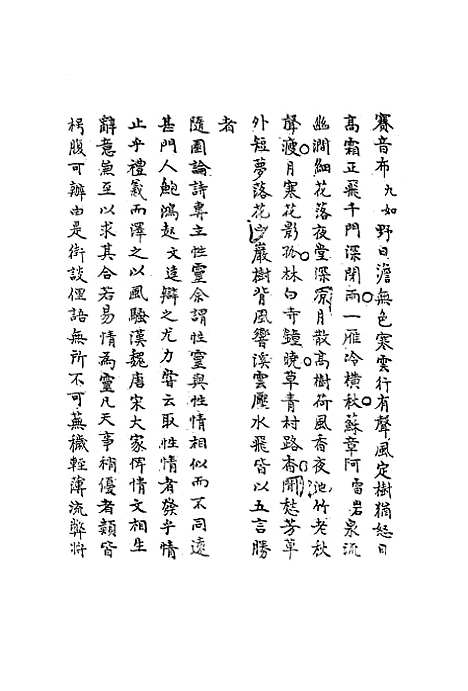 賽音布九如野日澹無色寒雲行有聲風定樹猶怒日
高霜正飛千門深閉雨一雁冷橫秋蘇章阿雷岩泉流
幽澗細花落夜堂深涼月散高樹荷風香夜池竹老秋
聲渡月寒花影孤林白寺鐘晚草青村路香閑愁芳草
外短夢落花巖樹背風響溪雲壓水飛皆以五言勝
者
隨園論詩專主性靈余謂性靈與性情相似而不同遠
甚門人鮑鴻起文逵辯之尤力嘗云取性情者發乎情
止乎禮義而澤之以風騷漢魏唐宋大家俾情文相生
辭意兼至以求其合若易情為靈凡天事稍優者類皆
枵腹可辦由是街談俚語無所不可蕪穢輕薄流弊將